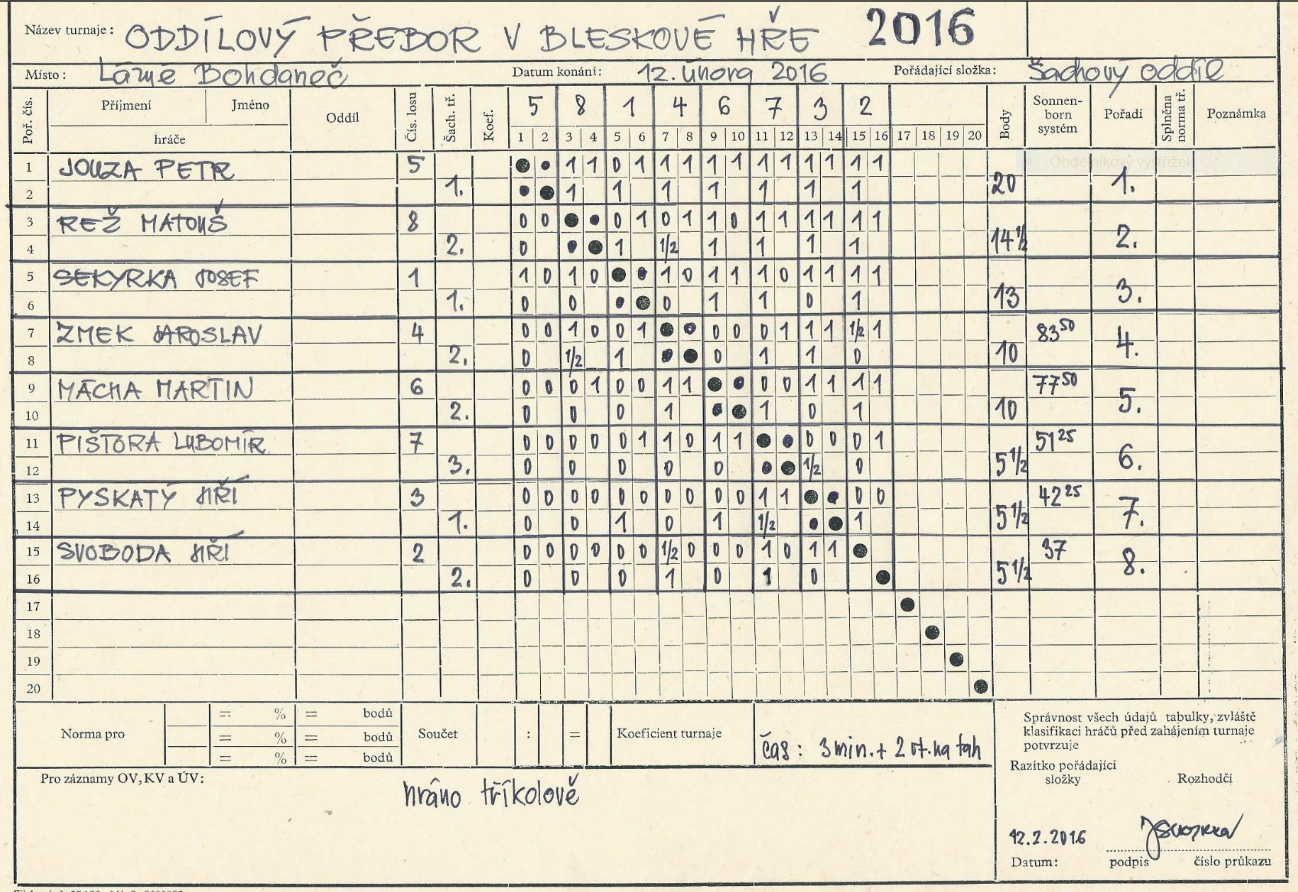 Název turnaje: ODDÍLOVÝ PŘEBOR V BLESKOVÉ HŘE 2016
Místo: Lázně Bohdaneč Datum konání: 12. února 2016 Pořádající složka: Šachový oddíl
Poř. čís. Příjmení Jméno hráče Oddíl Čís. losu Šach. tř. Koef. 5 8 1 4 6 7 3 2 Body Sonnen-born systém Pořadí Splněna norma tř. Poznámka
1 2 3 4 5 6 7 8 9 10 11 12 13 14 15 16 17 18 19 20
1 JOUZA PETR 5 1 1 0 1 1 1 1 1 1 1 1 1 1 1
Obdélníkový výstřižek
2 1. 1 1 1 1 1 1 1 20 1.
3 REŽ MATOUŠ 8 0 0 0 1 0 1 1 0 1 1 1 1 1 1
4 2. 0 1 1/2 1 1 1 1 14 1/2 2.
5 SEKYRKA JOSEF 1 1 0 1 0 1 0 1 1 1 0 1 1 1 1
6 1. 0 0 0 1 1 0 1 13 3.
7 ZMEK JAROSLAV 4 0 0 1 0 0 1 0 0 0 1 1 1 1/2 1 83 50
8 2. 0 1/2 1 0 1 1 0 10 4.
9 MÁCHA MARTIN 6 0 0 0 1 0 0 1 1 0 0 1 1 1 1 77 50
10 2. 0 0 0 1 1 0 1 10 5.
11 PIŠTORA LUBOMÍR 7 0 0 0 0 0 1 1 0 1 1 0 0 0 1 51 25
12 3. 0 0 0 0 0 1/2 0 5 1/2 6.
13 PYSKATÝ JIŘÍ 3 0 0 0 0 0 0 0 0 0 0 1 1 0 0 42 25
14 1. 0 0 1 0 1 1/2 1 5 1/2 7.
15 SVOBODA JIŘÍ 2 0 0 0 0 0 0 1/2 0 0 0 1 0 1 1 37
16 2. 0 0 0 1 0 1 0 5 1/2 8.
17
18
19
20
Norma pro = % = bodů Součet : = Koeficient turnaje čas: 3 min. + 2 vt. na tah
= % = bodů
= % = bodů
Správnost všech údajů tabulky, zvláště
klasifikaci hráčů před zahájením turnaje
potvrzuje
Razítko pořádající složky Rozhodčí
Pro záznamy OV, KV a ÚV:
hráno tříkolově
12.2.2016
Datum: podpis číslo průkazu